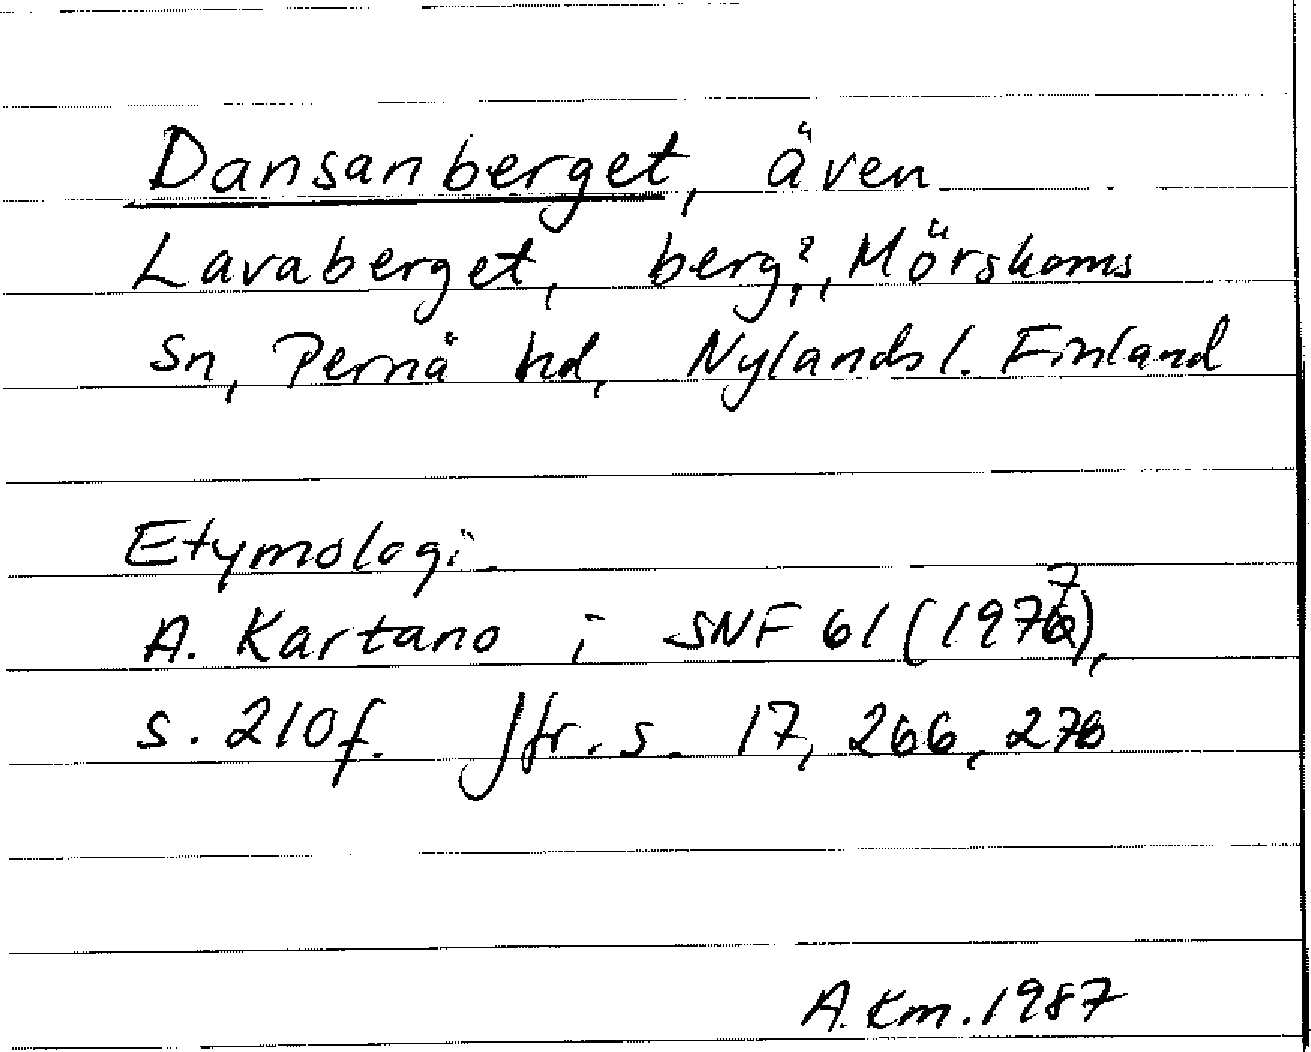 Dansanberget, även
Lavaberget, berg?, Mörskoms
sn, Pernå hd, Nylands l. Finland
Etymologi.
A. Kartano i SNF 61 (1977),
s. 210f. Jfr. s. 17, 266, 276
A.Km.1987